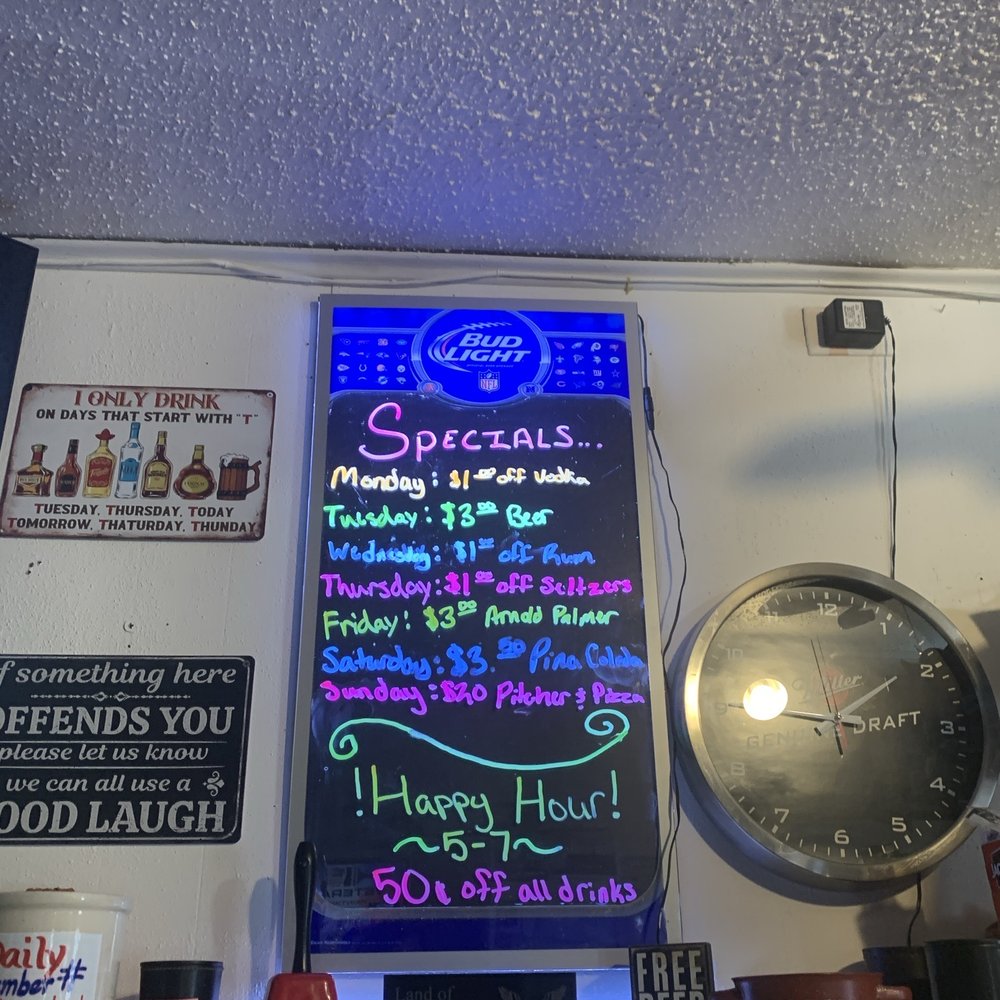 BUD
LIGHT
NFL
I ONLY DRINK
ON DAYS THAT START WITH "T"
TUESDAY, THURSDAY, TODAY
TOMORROW, THATURDAY, THUNDAY
Specials...
Monday: $1.00 off Vodka
Tuesday: $3.00 Beer
Wednesday: $1.00 off Rum
Thursday: $1.00 off Seltzers
Friday: $3.00 Arnold Palmer
Saturday: $3.50 Pina Colada
Sunday: $20 Pitcher & Pizza
!Happy Hour!
~5-7~
50¢ off all drinks
f something here
OFFENDS YOU
please let us know
we can all use a
OOD LAUGH
12
11
1
10
2
9
3
8
4
7
5
6
Miller
DRAFT
Daily
mber #
Land of
FREE
BEER